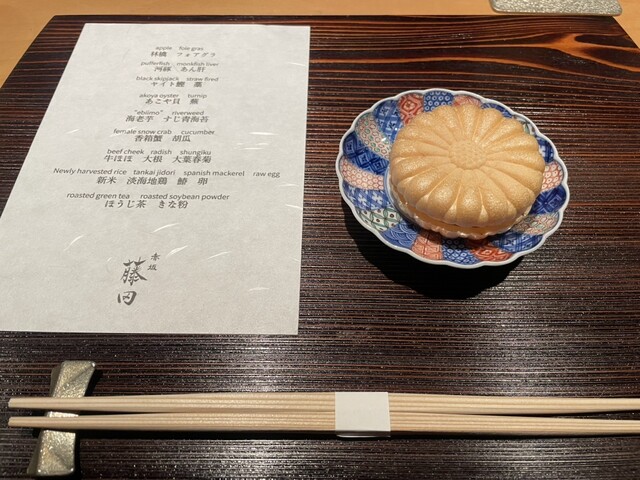 apple foie gras
林檎 フォアグラ
pufferfish monkfish liver
河豚 あん肝
black skipjack straw fired
ヤイト鰹 藁
akoya oyster turnip
あこや貝 蕪
"ebiimo" riverweed
海老芋 すじ青海苔
female snow crab cucumber
香箱蟹 胡瓜
beef cheek radish shungiku
牛ほほ 大根 大葉春菊
Newly harvested rice tankai jidori spanish mackerel raw egg
新米 淡海地鶏 鰆 卵
roasted green tea roasted soybean powder
ほうじ茶 きな粉
赤坂
藤田